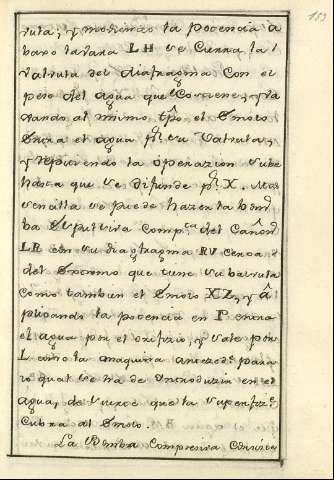 153
ruta; y moviendo la potencia a
baxo la vara LH se Cierra la
Valvula del diafragma Con el
peso del agua que Contiene, y va
xando al mismo tpo el Embolo
Entra el agua pr. su Valvula, y
y repitiendo la operazion sube
hasta que se difunde pr. X. Mas
sencilla se puede hazer la bom
ba Expulsiva Comp.ta del Cañon
LR con su diafragma RV cerca
del Extremo que tiene su balvula
como tambien el Embolo XZ, y ã
plicando la potencia en P entra
el agua por el orifizio, y sale por
L como la maquina antezedte. para
lo qual se ha de introduzir en el
agua, de suerte que la superfize.
Cubra al Embolo.
La Bomba Compresiva Consiste